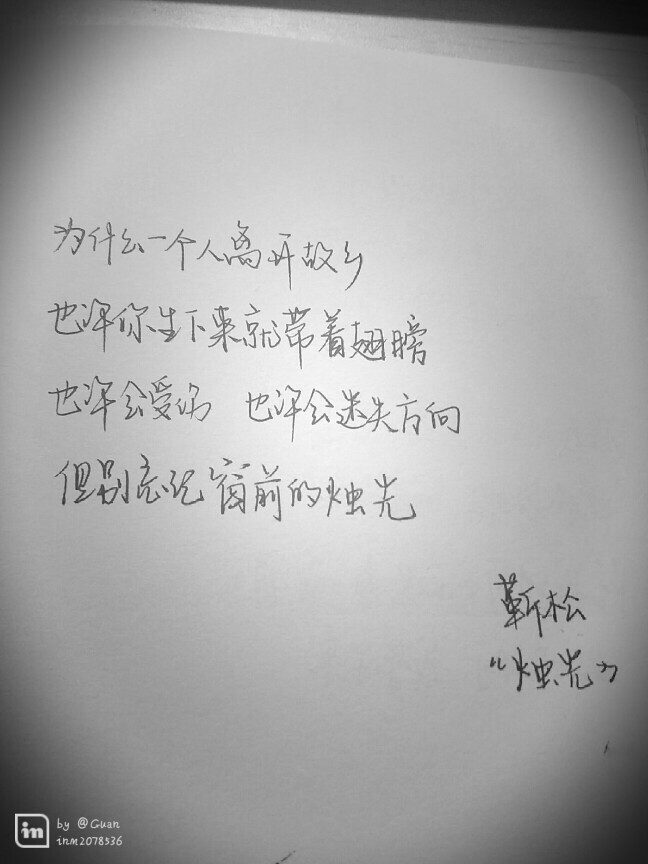 为什么一个人离开故乡
也许你生下来就带着翅膀
也许会受伤 也许会迷失方向
但别忘记窗前的烛光
靳松
“烛光”
in by @Guan
inm2078536